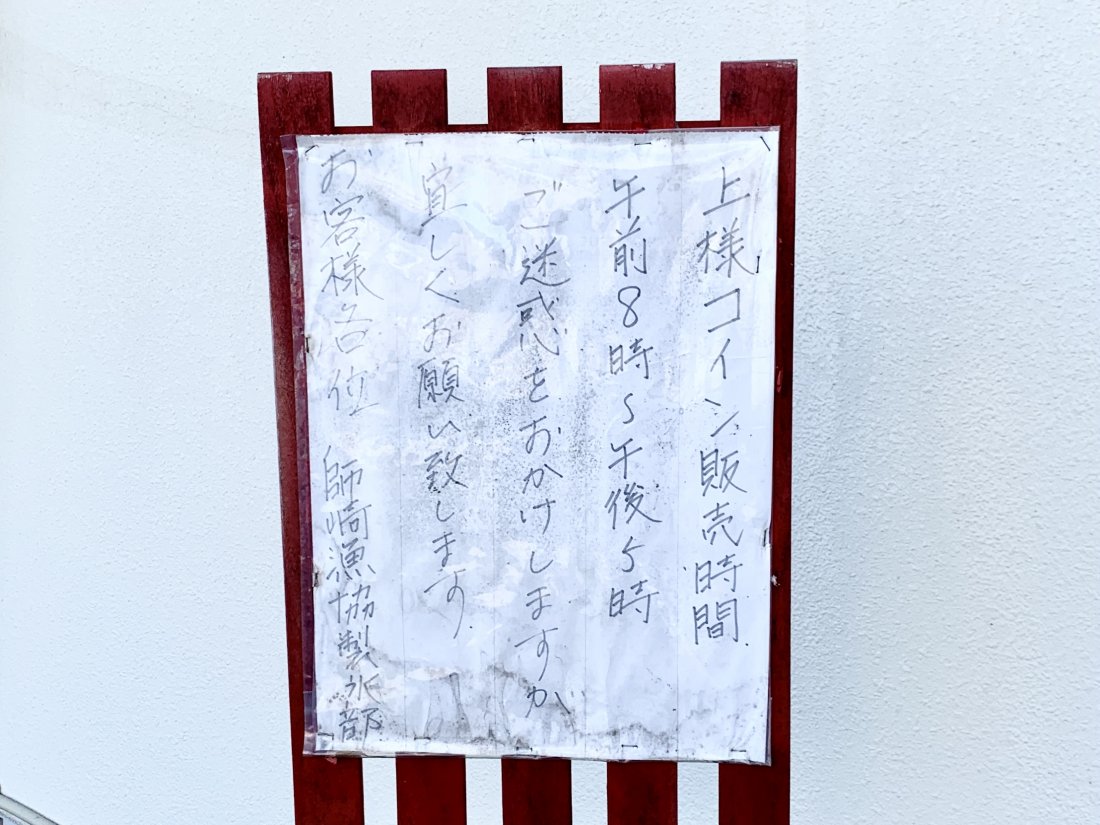 上様コイン販売時間
午前8時～午後5時
ご迷惑をおかけしますが
宜しくお願い致します
お客様各位 師崎漁協製氷部